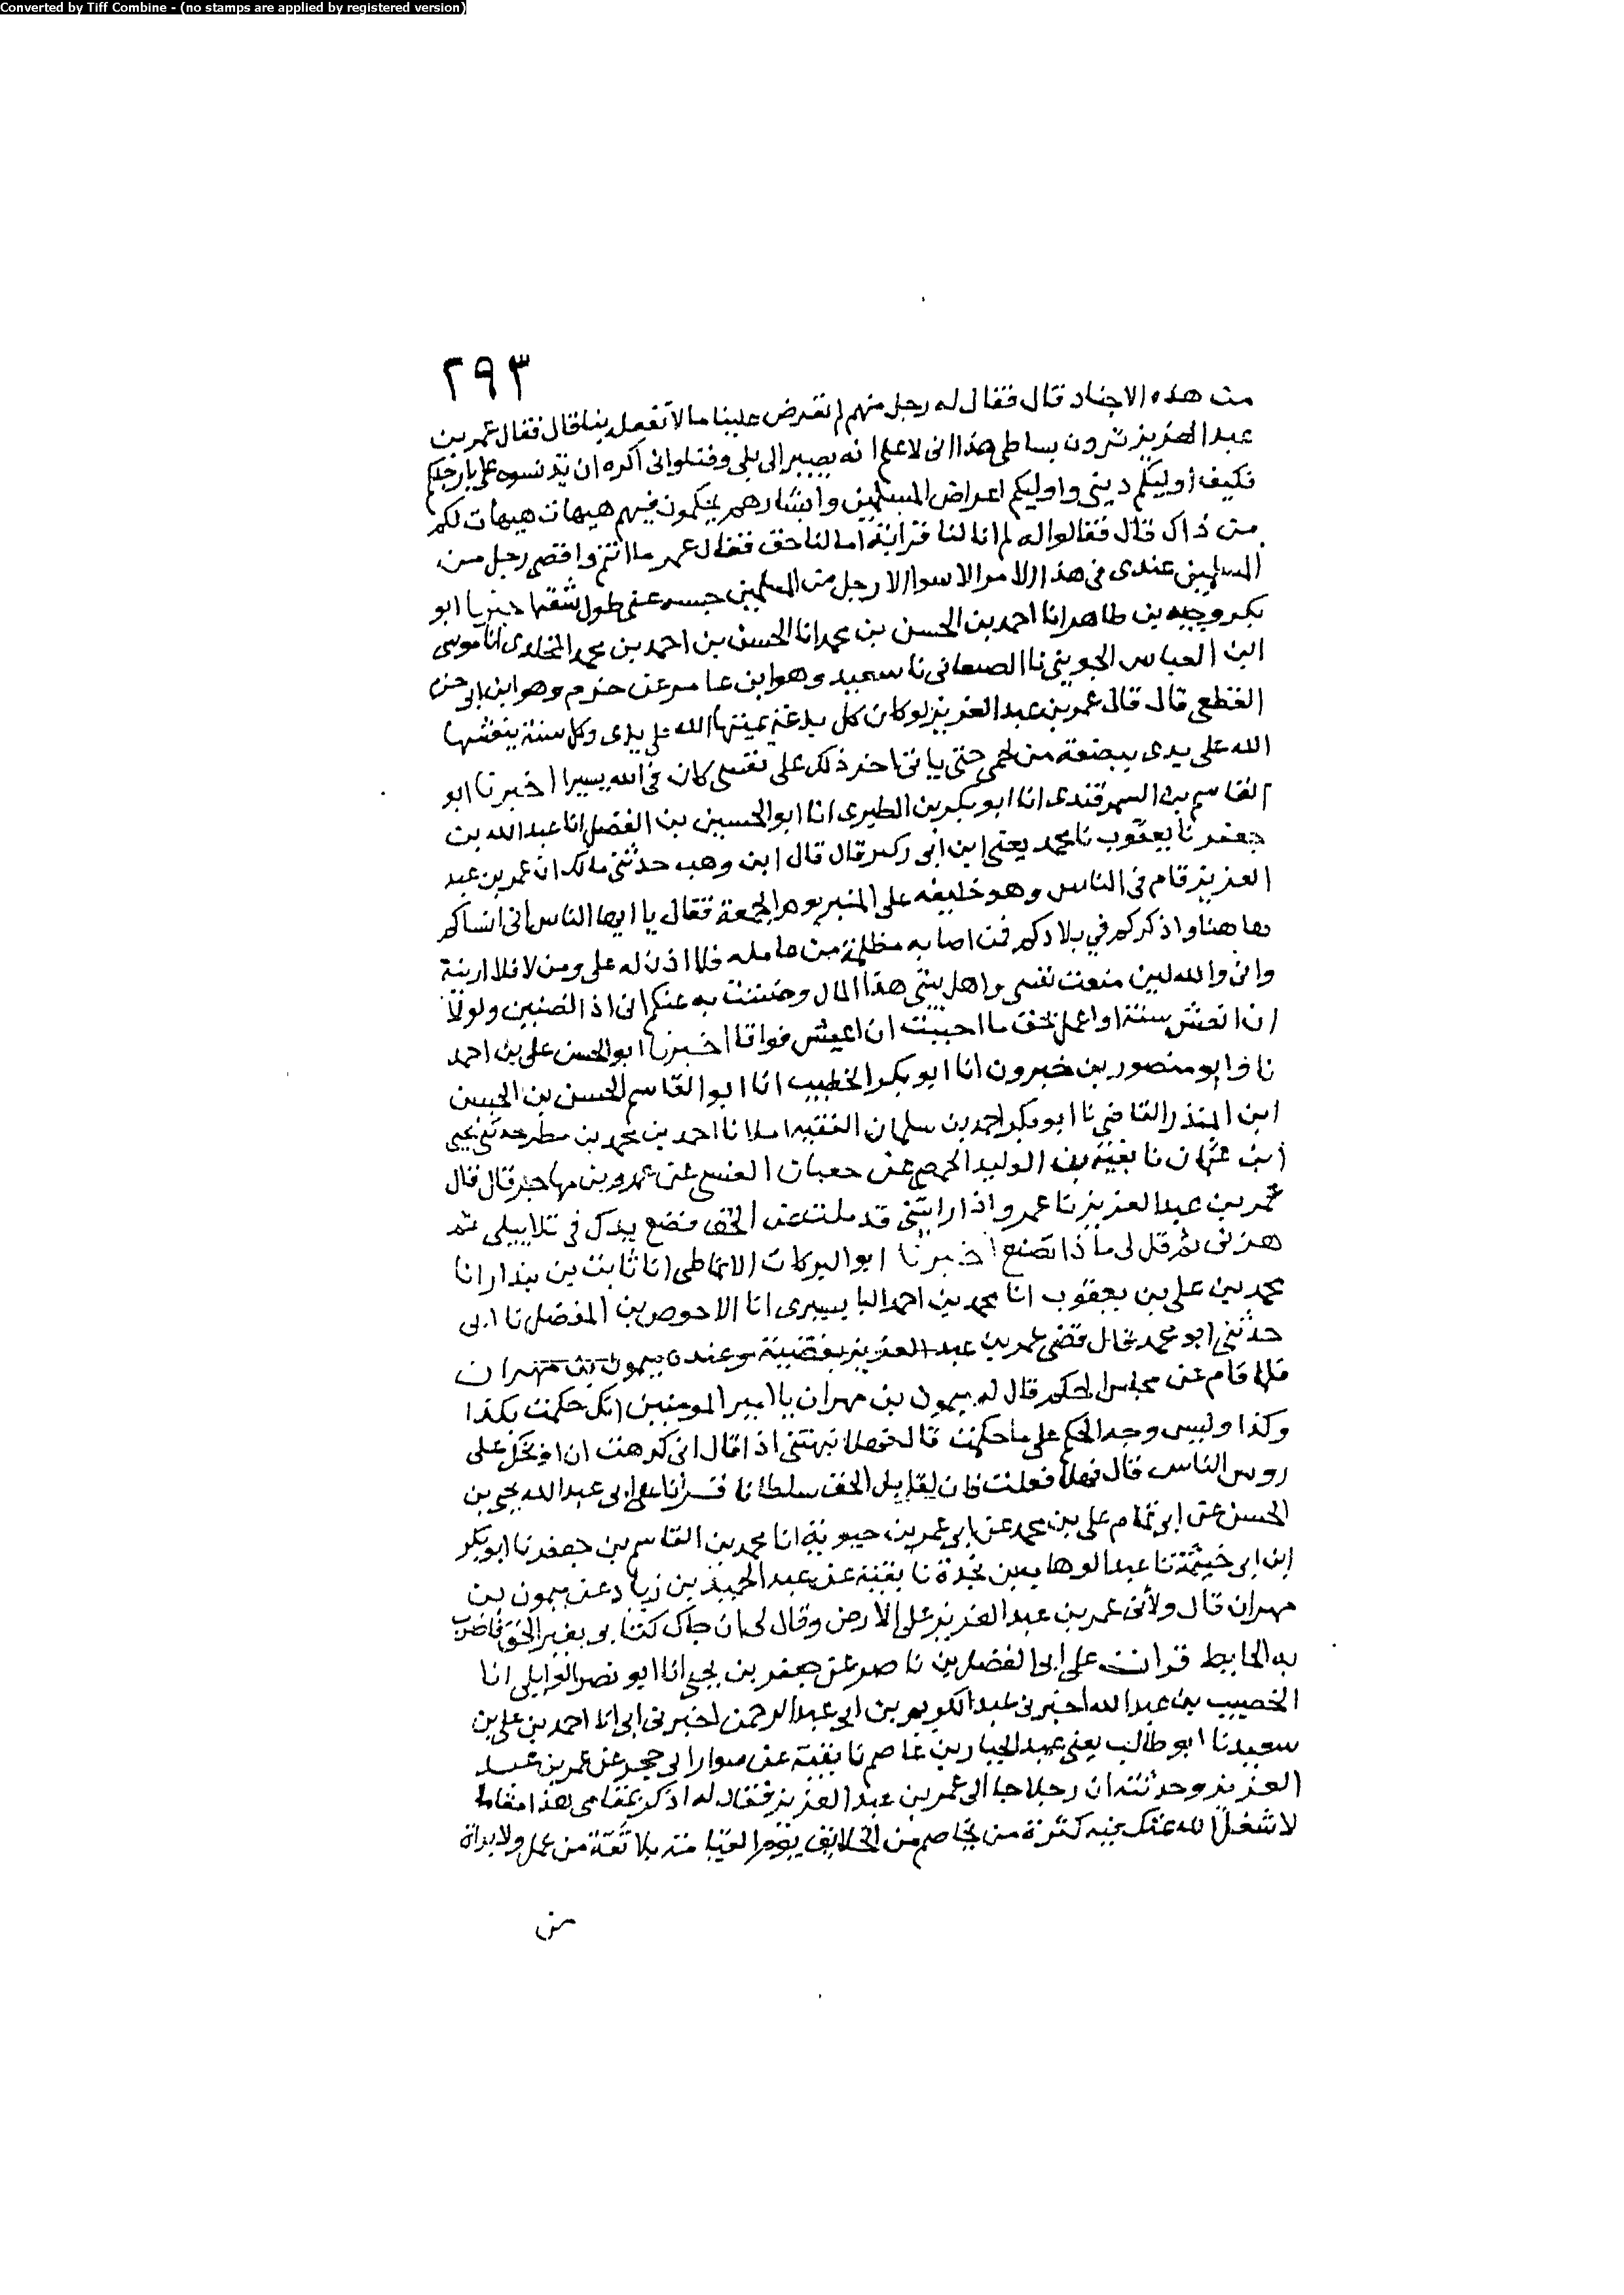 Converted by Tiff Combine - (no stamps are applied by registered version)
٢٩٣
من هذه الاجناد قال فقال له رجل منهم لم تعرض علينا ما لا تفعله بنا قال فقال عمر بن
عبد العزيز ترون بساطى هذا انى لاعلم انه يصير الى بلى وفتلوانى اكره ان تدنسوه على بارجلكم
فكيف اوليكم دينى واوليكم اعراض المسلمين وابشارهم تحكمون فيهم هيهات هيهات لكم
من ذاك قال فقالوا له لم انا لنا قرابة اما لنا حق فقال عمر ما انتم واقصى رجل من
المسلمين عندى فى هذا الامر الا سوا الا رجل من المسلمين حبسه عنى طول شقته اخبرنا ابو
بكر وجيه بن طاهر انا احمد بن الحسن بن محمد انا الحسن بن احمد بن محمد المخلدى انا موسى
ابن العباس الجوينى نا الصغانى نا سعيد وهو ابن عامر عن حزم وهو ابن ابى حزم
القطعى قال قال عمر بن عبد العزيز لو كان كل بدعة يميتها الله على يدى وكل سنة ينعشها
الله على يدى ببضعة من لحمى حتى ياتى اخر ذلك على نفسى كان فى الله يسيرا اخبرنا ابو
القاسم بن السمرقندى انا ابو بكر بن الطبرى انا ابو الحسين بن الفضل انا عبد الله بن
جعفر نا يعقوب نا محمد يعنى ابن ابى زكير قال قال ابن وهب حدثنى مالك ان عمر بن عبد
العزيز قام فى الناس وهو خليفه على المنبر يوم الجمعة فقال يا ايها الناس انى انساكم
هاهنا واذكركم في بلادكم فمن اصابه مظلمة من عامله فلا اذن له على ومن لا فلا ارينه
وانى والله لين منعت نفسى واهل بيتى هذا المال وضننت به عنكم انى اذا لضنين ولولا
ان انعش سنة او اعمل بحق ما احببت ان اعيش فواقا اخبرنا ابو الحسن على بن احمد
نا وابو منصور بن خيرون انا ابو بكر الخطيب انا ابو القاسم الحسن بن الحسن
ابن المنذر القاضى نا ابو بكر احمد بن سلمان الفقيه املا نا احمد بن محمد بن مطر حدثنى يحيى
ابن عثمان نا بقية بن الوليد الحمصى عن جعبان العنسى عن عمرو بن مهاجر قال قال
عمر بن عبد العزيز نا عمرو اذا رايتنى قد ملت عن الحق فضع يدك فى تلابيبى ثم
هزنى ثم قل لى ماذا تصنع اخبرنا ابو البركات الانماطى انا ثابت بن بندار انا
محمد بن على بن يعقوب انا محمد بن احمد البابسيرى انا الاحوص بن المفضل نا ابى
حدثنى ابو محمد قال قضى عمر بن عبد العزيز بقضية وعنده ميمون بن مهران
فلما قام عن مجلس الحكم قال له ميمون بن مهران يا امير المومنين انك حكمت بكذا
وكذا وليس وجه الحكم على ما حكمت قال فهلا نبهتنى اذا قال انى كرهت ان اوبخك على
روس الناس قال فهلا فعلت فان لقايل الحق سلطانا قرانا على ابى عبد الله يحيى بن
الحسن عن ابى تمام على بن محمد عن ابى عمر بن حيوية انا محمد بن القاسم بن جعفر نا ابو بكر
ابن ابى خيثمة نا عبد الوهاب بن نجدة نا بقية عن عبد الحميد بن زياد عن ميمون بن
مهران قال ولانى عمر بن عبد العزيز على الارض وقال لى ان جاك كتابى بغير الحق فاضرب
به الحايط قرات على ابى الفضل بن ناصر عن جعفر بن يحيى انا ابو نصر الوايلى انا
الخصيب بن عبد الله اخبرنى عبد الكريم بن ابى عبد الرحمن اخبرنى ابى انا احمد بن على بن
سعيد نا ابو طالب يعنى عبد الجبار بن عاصم نا بقية عن سوار ابى حجر عن عمر بن عبد
العزيز وحدثته ان رجلا جا الى عمر بن عبد العزيز فقال له اذكر بمقامى هذا مقاما
لا شغل الله عنك فيه كثرة من يخاصم من الخلايق يوم القيامة بلا ثقة من عمل ولا براة
من